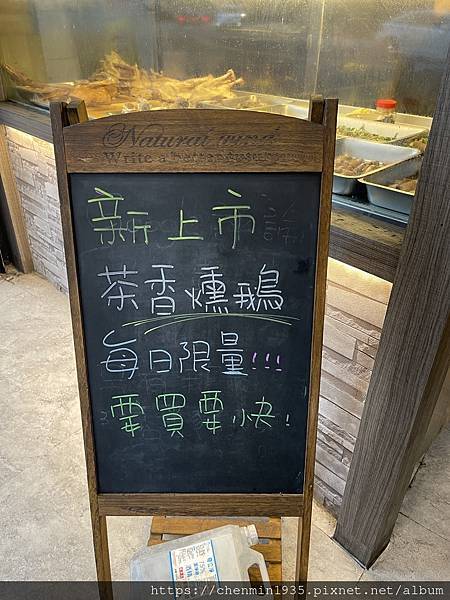 Natural wind
新上市
茶香燻鵝
每日限量!!!
要買要快!
75%
https://chenmin1935.pixnet.net/album